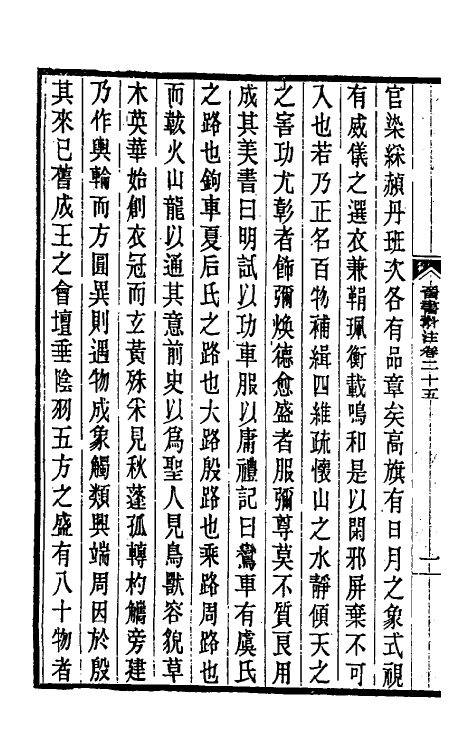 官染綵赬丹班次各有品章矣高旗有日月之象式視
有威儀之選衣兼鞙珮衡載鳴和是以閑邪屏棄不可
入也若乃正名百物補緝四維疏懷山之水靜傾天之
害功尤彰者飾彌煥德愈盛者服彌尊莫不質良用
成其美書曰明試以功車服以庸禮記曰鸞車有虞氏
之路也鉤車夏后氏之路也大路殷路也乘路周路也
而韍火山龍以通其意前史以爲聖人見鳥獸容貌草
木英華始創衣冠而玄黃殊采見秋蓬孤轉杓觿旁建
乃作輿輪而方圓異則遇物成象觸類興端周因於殷
其來已舊成王之會壇垂陰羽五方之盛有八十物者
晉書斠注卷二十五
一